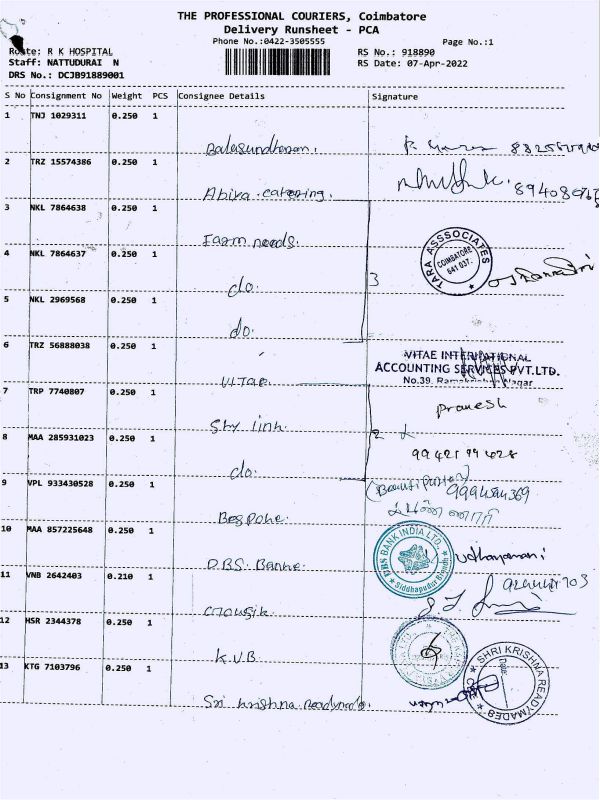 THE PROFESSIONAL COURIERS, Coimbatore
Delivery Runsheet - PCA
Phone No.:0422-3505555
Page No.:1
Route: R K HOSPITAL
RS No.: 918890
Staff: NATTUDURAI N
RS Date: 07-Apr-2022
DRS No.: DCJB91889001
S No Consignment No Weight PCS Consignee Details Signature
1 TNJ 1029311 0.250 1
Balasundharam.
2 TRZ 15574386 0.250 1
Abira catering.
3 NKL 7864638 0.250 1
Farm needs.
TARA ASSSOCIATES
COIMBATORE
641 037.
4 NKL 7864637 0.250 1
do.
3
5 NKL 2969568 0.250 1
do.
6 TRZ 56888038 0.250 1
VITAE INTERNATIONAL
ACCOUNTING SERVICES PVT.LTD.
No.39, Ramakrishna Nagar
VITAE.
7 TRP 7740807 0.250 1
Pranesh
Sky link.
8 MAA 285931023 0.250 1
2
do.
9 VPL 933430528 0.250 1
Bespoke.
10 MAA 857225648 0.250 1
DBS BANK INDIA LTD.
Siddhapudur Branch
Udhayamani
D.B.S. Banke
11 VNB 2642403 0.210 1
12 HSR 2344378 0.250 1
K.V.B.
13 KTG 7103796 0.250 1
SHRI KRISHNA READYMADES
Sri krishna readymade.